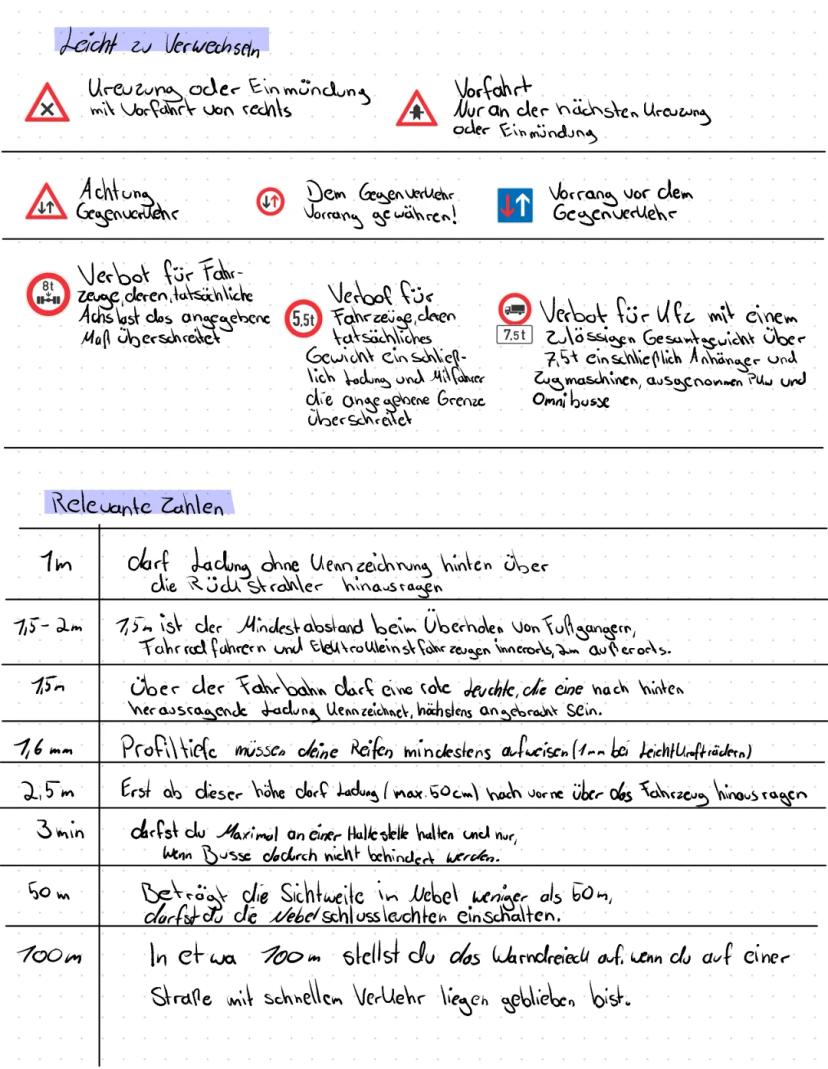 Leicht zu Verwechseln
Kreuzung oder Einmündung
mit Vorfahrt von rechts
Vorfahrt
Nur an der nächsten Kreuzung
oder Einmündung
Achtung
Gegenverkehr
Dem Gegenverkehr
Vorrang gewähren!
Vorrang vor dem
Gegenverkehr
8t
Verbot für Fahr-
zeuge, deren, tatsächliche
Achslast das angegebene
Maß überschreitet
5,5t
Verbot für
Fahrzeuge, deren
tatsächliches
Gewicht einschließ-
lich Ladung und Mitfahrer
die angegebene Grenze
überschreitet
7,5t
Verbot für Kfz mit einem
zulässigen Gesamtgewicht über
7,5t einschließlich Anhänger und
Zugmaschinen, ausgenommen PKW und
Omnibusse
Relevante Zahlen
1m
darf Ladung ohne Kennzeichnung hinten über
die Rückstrahler hinausragen
1,5-2m
1,5m ist der Mindestabstand beim Überholen von Fußgängern,
Fahrradfahrern und Elektrokleinstfahrzeugen innerorts, 2m außerorts.
1,5m
Über der Fahrbahn darf eine rote Leuchte, die eine nach hinten
herausragende Ladung kennzeichnet, höchstens angebracht sein.
1,6 mm
Profiltiefe müssen deine Reifen mindestens aufweisen (1mm bei Leichtkrafträdern)
2,5m
Erst ab dieser höhe darf Ladung (max. 50cm) nach vorne über das Fahrzeug hinausragen
3 min
darfst du Maximal an einer Haltestelle halten und nur,
wenn Busse dadurch nicht behindert werden.
50 m
Beträgt die Sichtweite in Nebel weniger als 50m,
darfst du die Nebelschlussleuchten einschalten.
100m
In etwa 100m stellst du das Warndreieck auf, wenn du auf einer
Straße mit schnellem Verkehr liegen geblieben bist.